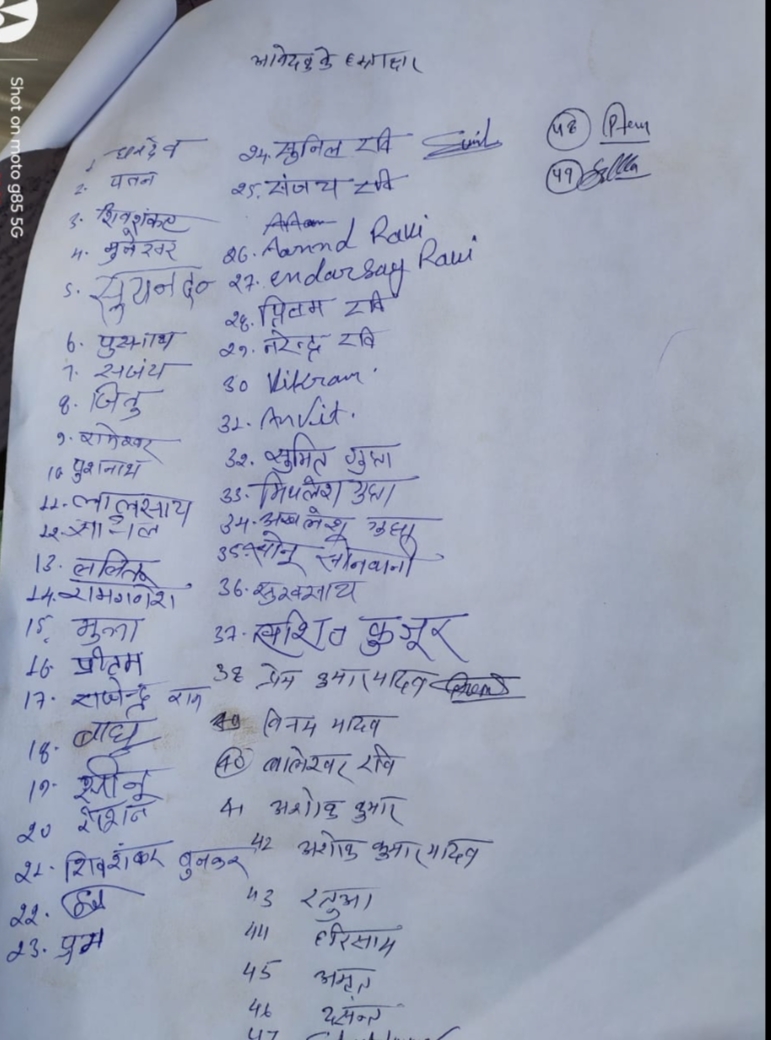 आवेदक के हस्ताक्षर
1. धनदेव
2. पतन
3. शिवशंकर
4. मुनेश्वर
5.
6.
7. सजंय
8. जितु
9. रामेश्वर
10 पुशनाथ
11. लालसाय
12.
13. ललित
14. रामगनेश
15. मुन्ना
16 प्रीतम
17. राजेन्द्र राम
18.
19. सोनू
20 रोशन
21. शिवशंकर बुनकर
22.
23. प्रेम
24. सुनिल रवि Sunil
25. संजय रवि
26. Ravi
27. Ravi
28. प्रितम रवि
29. नरेन्द्र रवि
30 Vikram
31. Ankit.
32. सुमित गुप्ता
33. मिथलेश गुप्ता
34. अखलेश गुप्ता
35. सोनू सोनवानी
36. सुखसाय
37. कुजूर
38 प्रेम कुमार यादव
39 विनय यादव
40 बालेश्वर रवि
41 अशोक कुमार
42 अशोक कुमार यादव
43 रतुआ
44 हरिसाय
45 अमृत
46 बसन्त
47
48 Prem
49
Shot on moto g85 5G